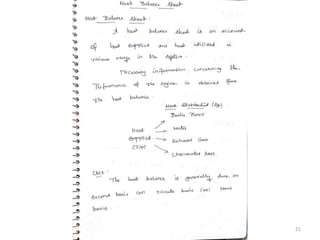 Heat Balance Sheet
Heat Balance Sheet :
A heat balance sheet is an account
of heat supplied and heat utilized in
various ways in the system.
Necessary information concerning the
Performance of the engine is obtained from
the heat balance.
Heat
Brake Power
Heat supplied
Water
Exhaust Gas
Unaccounted loss.
The heat balance is generally done on
second basis (or) minute basis (or) hour
basis.
11